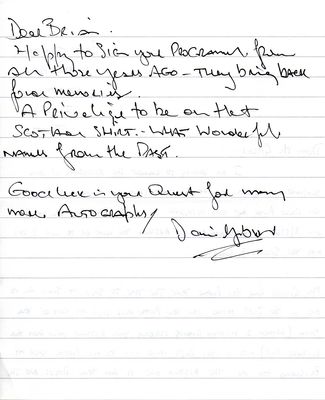 Dear Brian.
Happy to Sign your PROGRAMME from
all those years AGO - They bring BACK
fond memories.
A Privilege to be on that
SCOTLAND SHIRT. - WHAT Wonderful
NAMES from the PAST.
Good luck in your Quest for many
more AUTOGRAPHS/